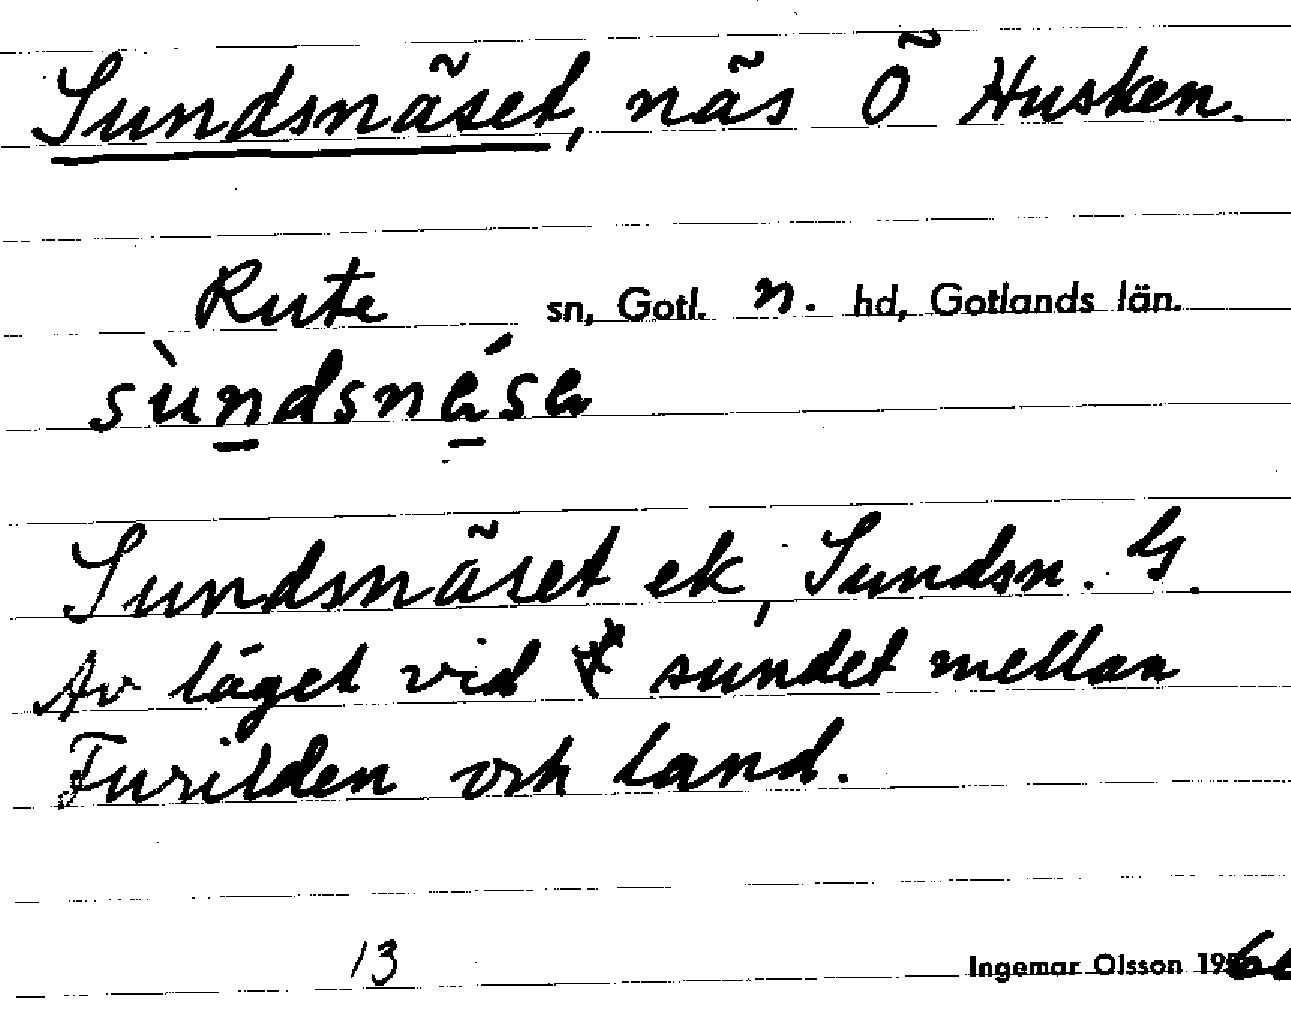 Sundsnäset, näs Ö Husken.
Rute sn, Gotl. n. hd, Gotlands län.
Sundsnäset ek, Sundsn. G.
Av läget vid sundet mellan
Furilden och land.
13 Ingemar Olsson 19